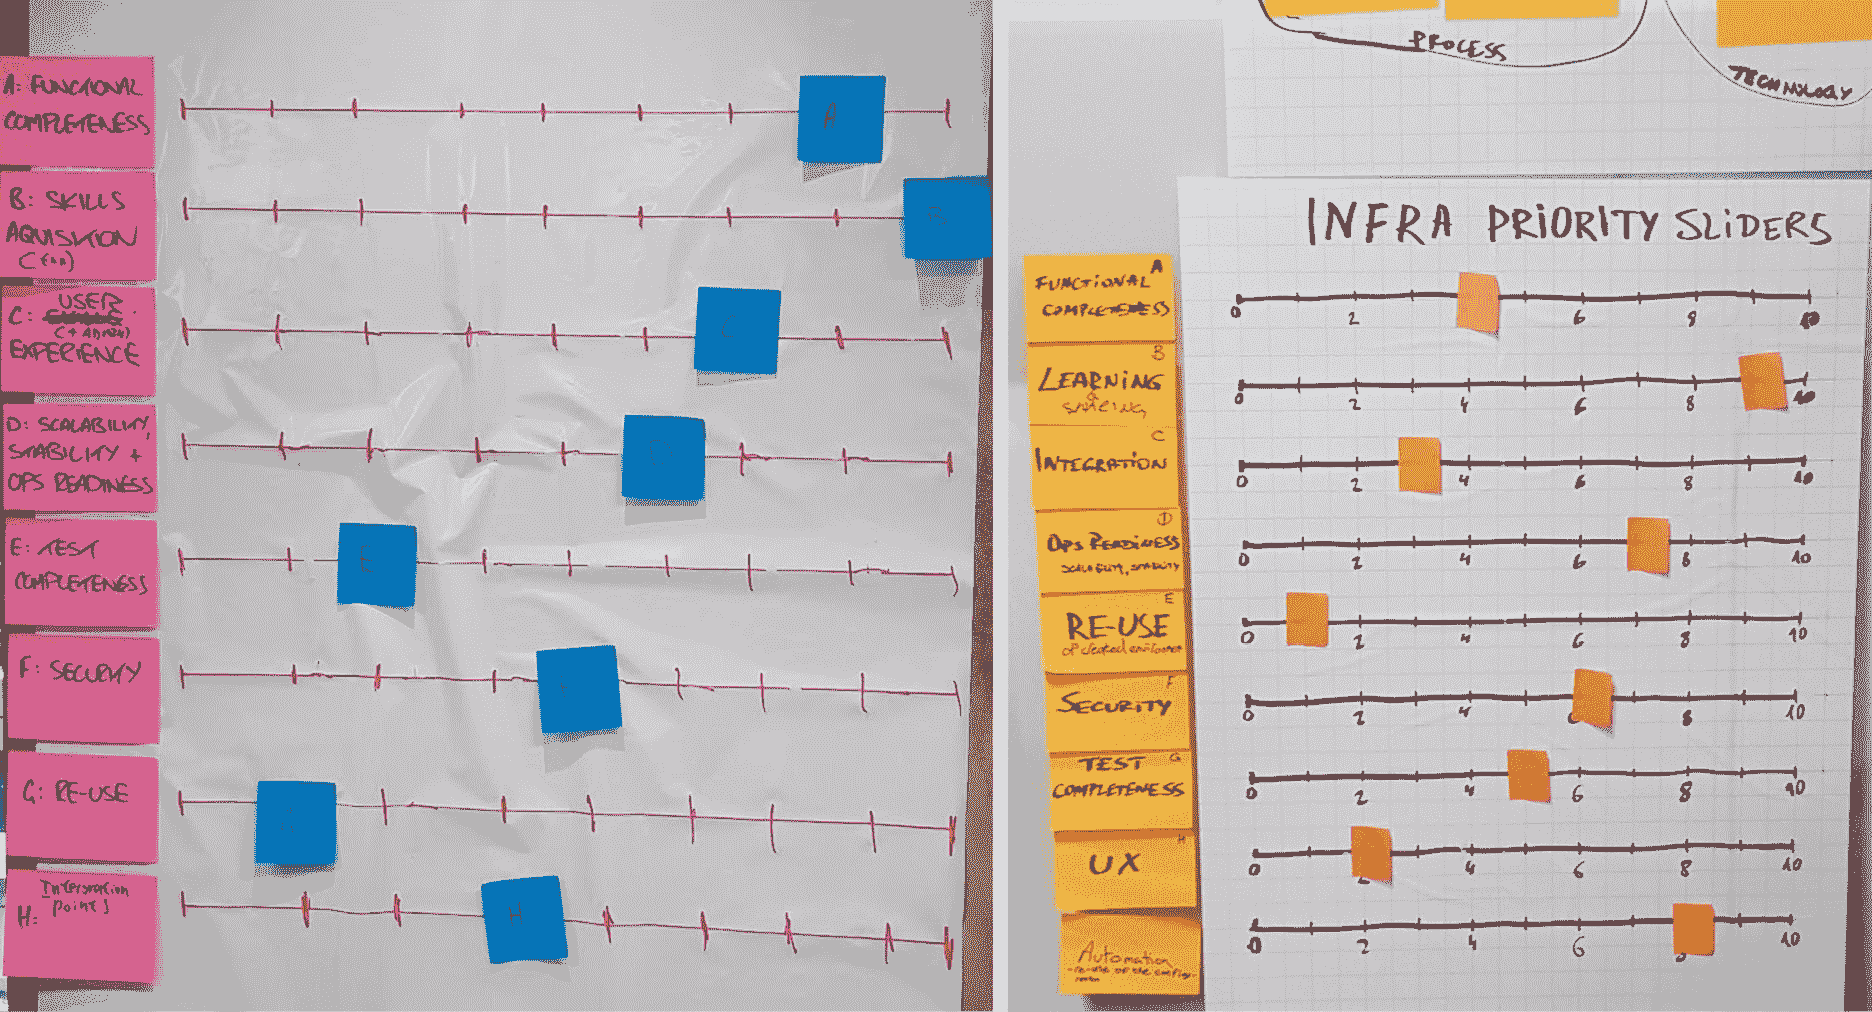 A: FUNCTIONAL
COMPLETENESS
A
B: SKILLS
AQUISITION
C: USER
EXPERIENCE
C
D: SCALABILITY,
STABILITY +
OPS READINESS
E: TEST
COMPLETENESS
E
F: SECURITY
G: RE-USE
H: Integration
points
H
PROCESS
TECHNOLOGY
INFRA PRIORITY SLIDERS
A
FUNCTIONAL
COMPLETENESS
0 2 6 8 10
B
LEARNING
&
SHARING
0 2 4 6 8 10
C
INTEGRATION
0 2 4 6 8 10
D
OPS READINESS
SCALABILITY, STABILITY
0 2 4 6 8 10
E
RE-USE
of created
0 2 4 6 8 10
F
SECURITY
0 2 4 6 8 10
G
TEST
COMPLETENESS
0 2 4 6 8 10
H
UX
0 2 4 6 8 10
Automation
0 2 4 6 8 10